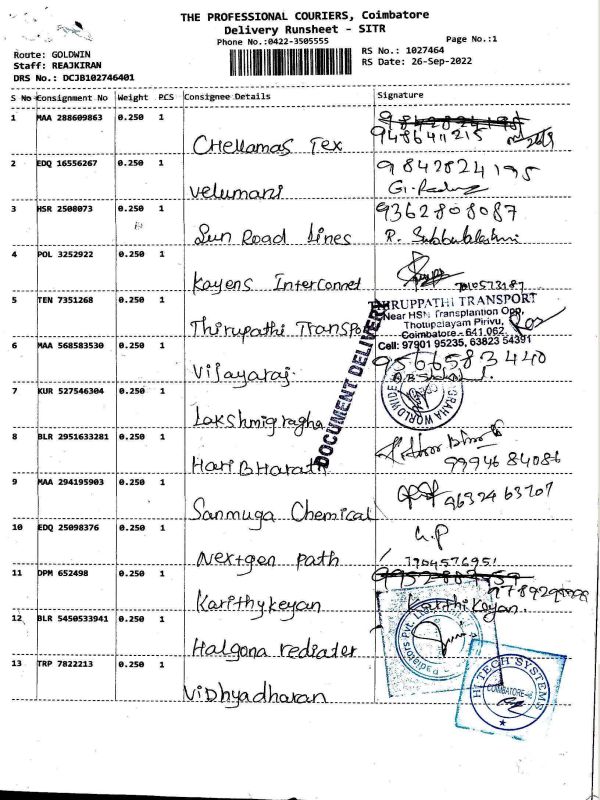 THE PROFESSIONAL COURIERS, Coimbatore
Delivery Runsheet - SITR
Phone No.:0422-3505555
Page No.:1
Route: GOLDWIN
RS No.: 1027464
Staff: REAJKIRAN
RS Date: 26-Sep-2022
DRS No.: DCJB102746401
S No Consignment No Weight PCS Consignee Details Signature
1 MAA 288609863 0.250 1
9486411215
Chellamas Tex
2 EDQ 16556267 0.250 1
9842824195
Velumani
3 HSR 2508073 0.250 1
9362808087
Sun Road Lines R. Subbulakshmi
4 POL 3252922 0.250 1
Kayens Interconnet 7010573187
5 TEN 7351268 0.250 1
THIRUPPATHI TRANSPORT
Near HSN Transplantion Opp,
Thottipalayam Pirivu,
Coimbatore - 641 062.
Cell: 97901 95235, 63823 54391
Thirupathi Transpo
DOCUMENT DELIVERY
6 MAA 568583530 0.250 1
9566583440
Vijayaraj.
7 KUR 527546304 0.250 1
GRAHA WORLDWIDE
Lakshmigragha
8 BLR 2951633281 0.250 1
Hari Bharath
9994684086
9 MAA 294195903 0.250 1
9632463707
Sanmuga Chemical
10 EDQ 25098376 0.250 1
G.P
Nextgen path
7904576951
11 DPM 652498 0.250 1
Karithykeyan Karthikeyan.
12 BLR 5450533941 0.250 1
Radiators Pvt.
Halgona rediater
13 TRP 7822213 0.250 1
HI TECH SYSTEMS
COIMBATORE
Vidhyadharan